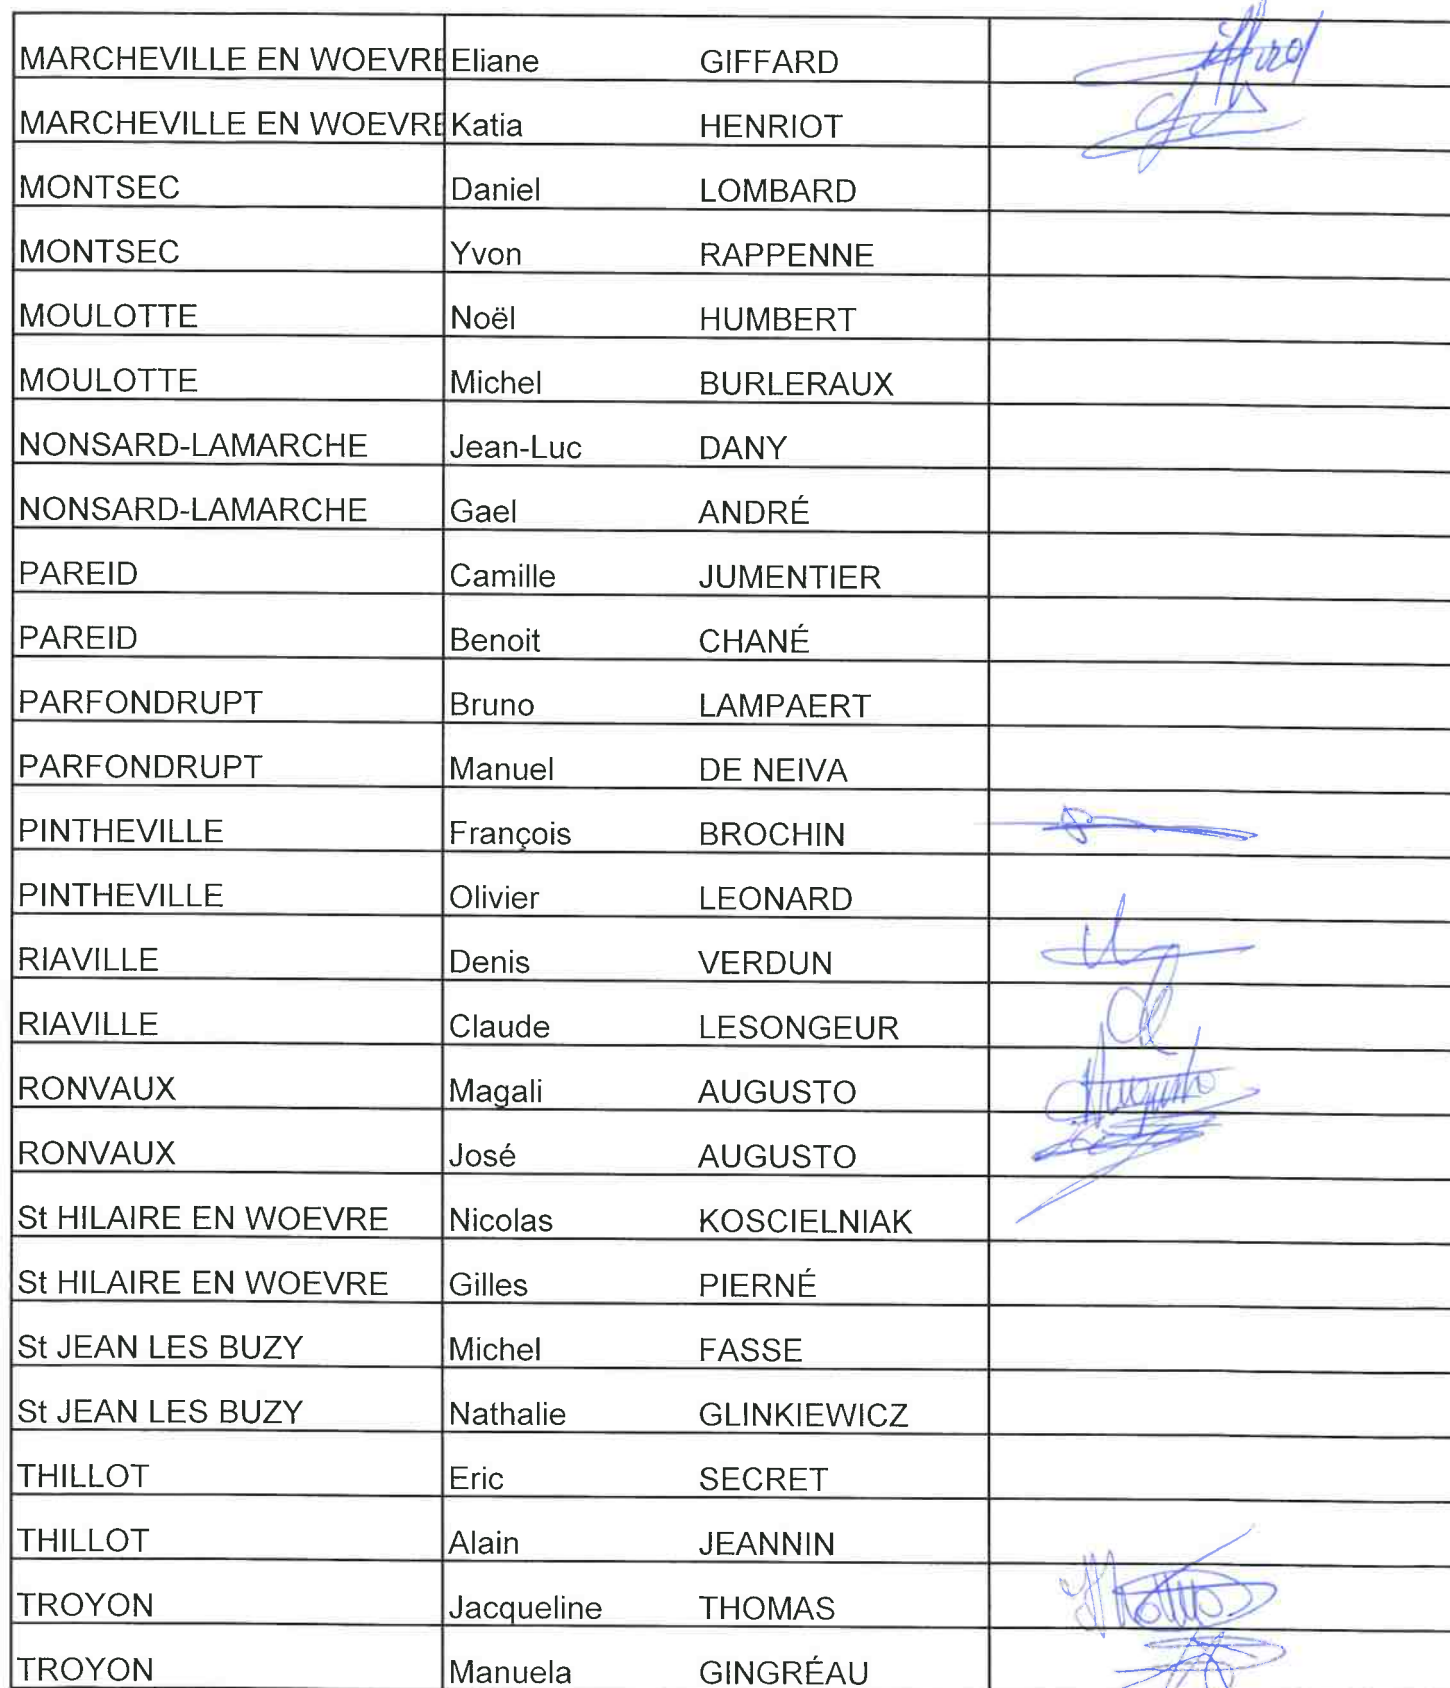 MARCHEVILLE EN WOEVRE Eliane GIFFARD Giffard
MARCHEVILLE EN WOEVRE Katia HENRIOT
MONTSEC Daniel LOMBARD
MONTSEC Yvon RAPPENNE
MOULOTTE Noël HUMBERT
MOULOTTE Michel BURLERAUX
NONSARD-LAMARCHE Jean-Luc DANY
NONSARD-LAMARCHE Gael ANDRÉ
PAREID Camille JUMENTIER
PAREID Benoit CHANÉ
PARFONDRUPT Bruno LAMPAERT
PARFONDRUPT Manuel DE NEIVA
PINTHEVILLE François BROCHIN
PINTHEVILLE Olivier LEONARD
RIAVILLE Denis VERDUN
RIAVILLE Claude LESONGEUR
RONVAUX Magali AUGUSTO Augusto
RONVAUX José AUGUSTO
St HILAIRE EN WOEVRE Nicolas KOSCIELNIAK
St HILAIRE EN WOEVRE Gilles PIERNÉ
St JEAN LES BUZY Michel FASSE
St JEAN LES BUZY Nathalie GLINKIEWICZ
THILLOT Eric SECRET
THILLOT Alain JEANNIN
TROYON Jacqueline THOMAS
TROYON Manuela GINGRÉAU